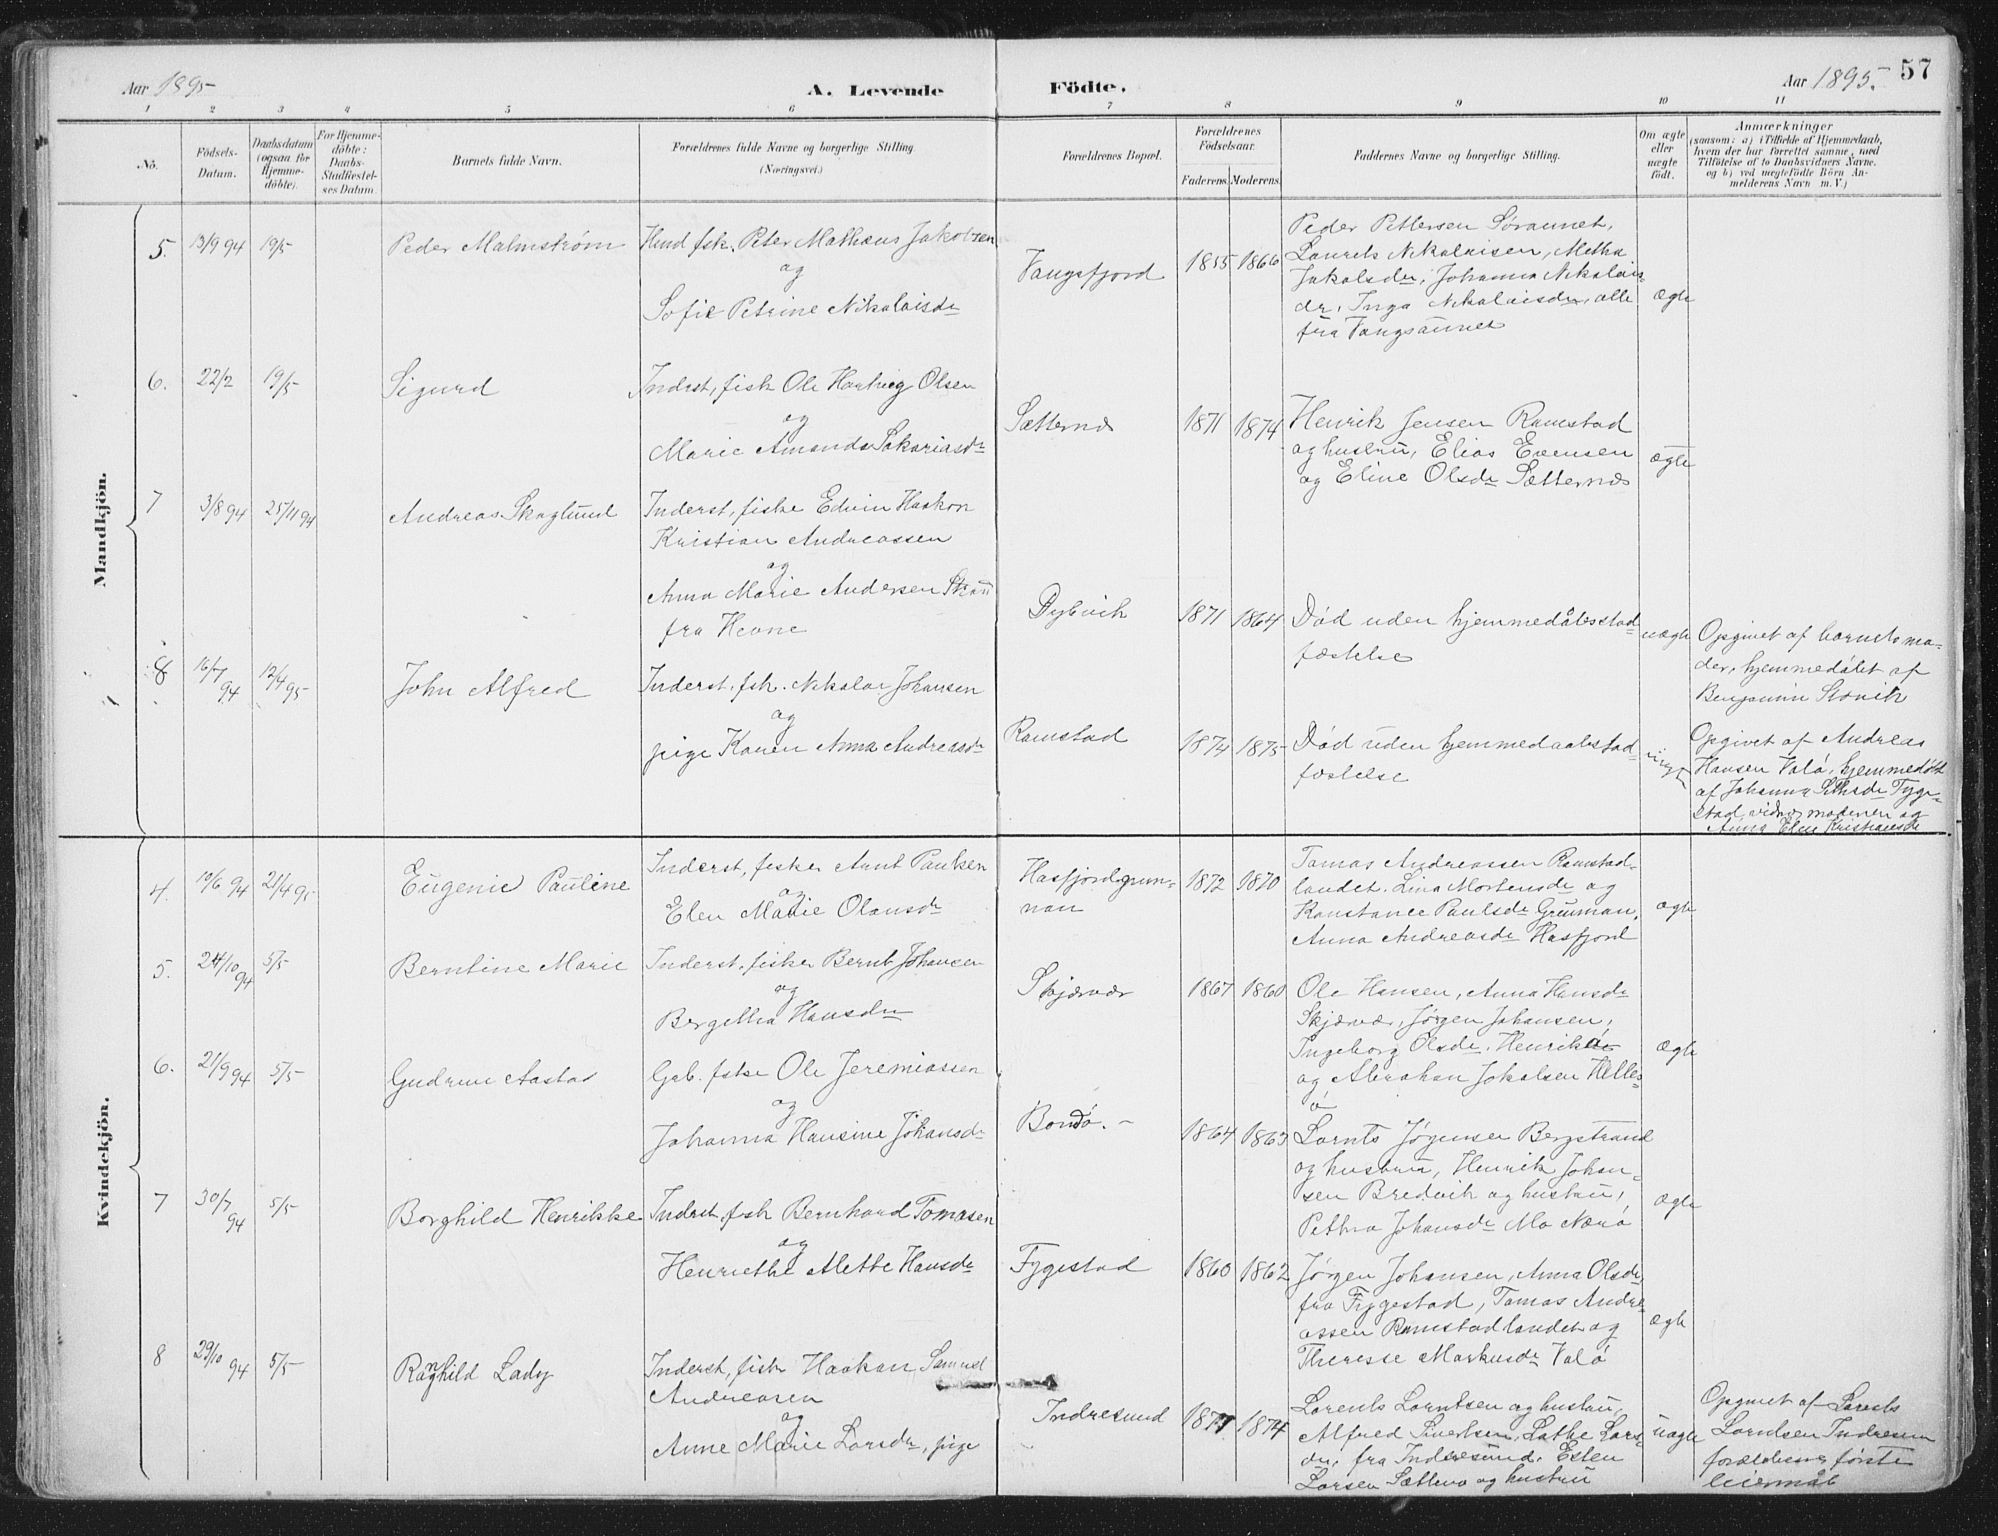 Aar 1895
A. Levende
Födte.
Aar 1895.
57
1 2 3 4 5 6 7 8 9 10 11
No.
Födsels-
Datum.
Daabsdatum
(ogsaa for
Hjemme-
döbte).
For Hjemme-
döbte:
Daabs-
Stadfæstel-
ses Datum.
Barnets fulde Navn.
Forældrenes fulde Navne og borgerlige Stilling
(Næringsvei.)
Forældrenes Bopæl.
Forældrenes
Födselsaar.
Faderens. Moderens.
Faddernes Navne og borgerlige Stilling.
Om ægte
eller
uægte
födt.
Anmærkninger
(saasom: a) i Tilfælde af Hjemmedaab,
hvem der har forrettet samme, med
Tilföielse af to Daabsvidners Navne,
og b) ved uegtefödte Börn An-
melderens Navn m. V.)
Mandkjön.
5. 13/9 94 19/5 Peder Malmstrøm
Hmd fsk. Peter Mathæus Jakobsen
og
Sofie Petrine Nikolaisdr
Vangsfjord 1855 1866
Peder Pettersen Søraunet,
Laurits Nikolaisen, Metha
Jakobsdr, Johanna Nikolais-
dr, Inga Nikolaisdr, alle
fra Vangsaunet
ægte
6. 22/2 19/5 Sigurd
Inderst, fisk Ole Hartvig Olsen
og
Marie Amanda Sakariasdr
Sætternæs 1871 1874
Henrik Jensen Ramstad
og hustru, Elias Evensen
og Eline Olsdr Sætternæs
ægte
7 3/8 94 25/11 94 Andreas Skaglund
Inderst, fiske Edvin Haakon
Kristian Andreassen
og
Anna Marie Andersen
fra Hevne
Dybvik 1871 1864
Død uden hjemmedåbsstad-
fæstelse
uægte
Opgivet af barnets mo-
der, hjemmedøbt af
Benjamin
8 16/7 94 12/4 95 John Alfred
Inderst, fsk. Nikolai Johansen
og
pige Karen Anna Andreasdr
Ramstad 1874 1875
Død uden hjemmedaabsstad-
fæstelse
uægt
Opgivet af Andreas
Hansen Valø, hjemmedøbt
af Johanna Tyge-
stad, vidner moderen og
Anna Elen Kristiansdr
Kvindekjön.
4. 10/6 94 21/4 95 Eugenie Pauline
Inderst, fisker Arnt Paulsen
og
Elen Marie Olausdr
Hasfjordgrun-
nan
1872 1870
Tomas Andreassen Ramstad-
landet. Lina Mortensdr og
Konstance Paulsdr Grunnan,
Anna Andreasdr Hasfjord
ægte
5. 24/10 94 5/5 Berntine Marie
Inderst, fisker Bernt Johansen
og
Bergitha Hansdr
Skjærvær 1867 1860
Ole Hansen, Anna Hansdr
Skjærvær, Jørgen Johansen,
Ingeborg Olsdr, Henrikka
og Abraham Jakobsen Helles-
ø
ægte
6. 21/9 94 5/5 Gudrun Aastad
Grb. fske Ole Jeremiassen
og
Johanna Hansine Johansdr
Bondø. 1864 1863
Lornts Jørgensen Bergstrand
og hustru, Henrik Johan-
sen Bredvik og hustru,
Pethra Johansdr Mo Nærø
ægte
7 30/7 94 5/5 Borghild Henrikke
Inderst, fsk Bernhard Tomasen
og
Henriethe Alette Hansdr
Fygestad 1860 1862
Jørgen Johansen, Anna Olsdr
fra Fygestad, Tomas Andre-
assen Ramstadlandet og
Therese Markusdr Valø
ægte
8 29/10 94 5/5 Ragnhild Lady
Inderst, fisk Haakon Samuel
Andreasen
og
Anne Marie Larsdr, pige
Indresund 1871 1874
Lorents Lorntsen og hustru,
Alfred Sivertsen, Lathe Lars-
dr, fra Indresund, Esten
Larsen og hustru
uægte
Opgivet af Lorents
Lorntsen Indresun
forældrenes første
leiermål